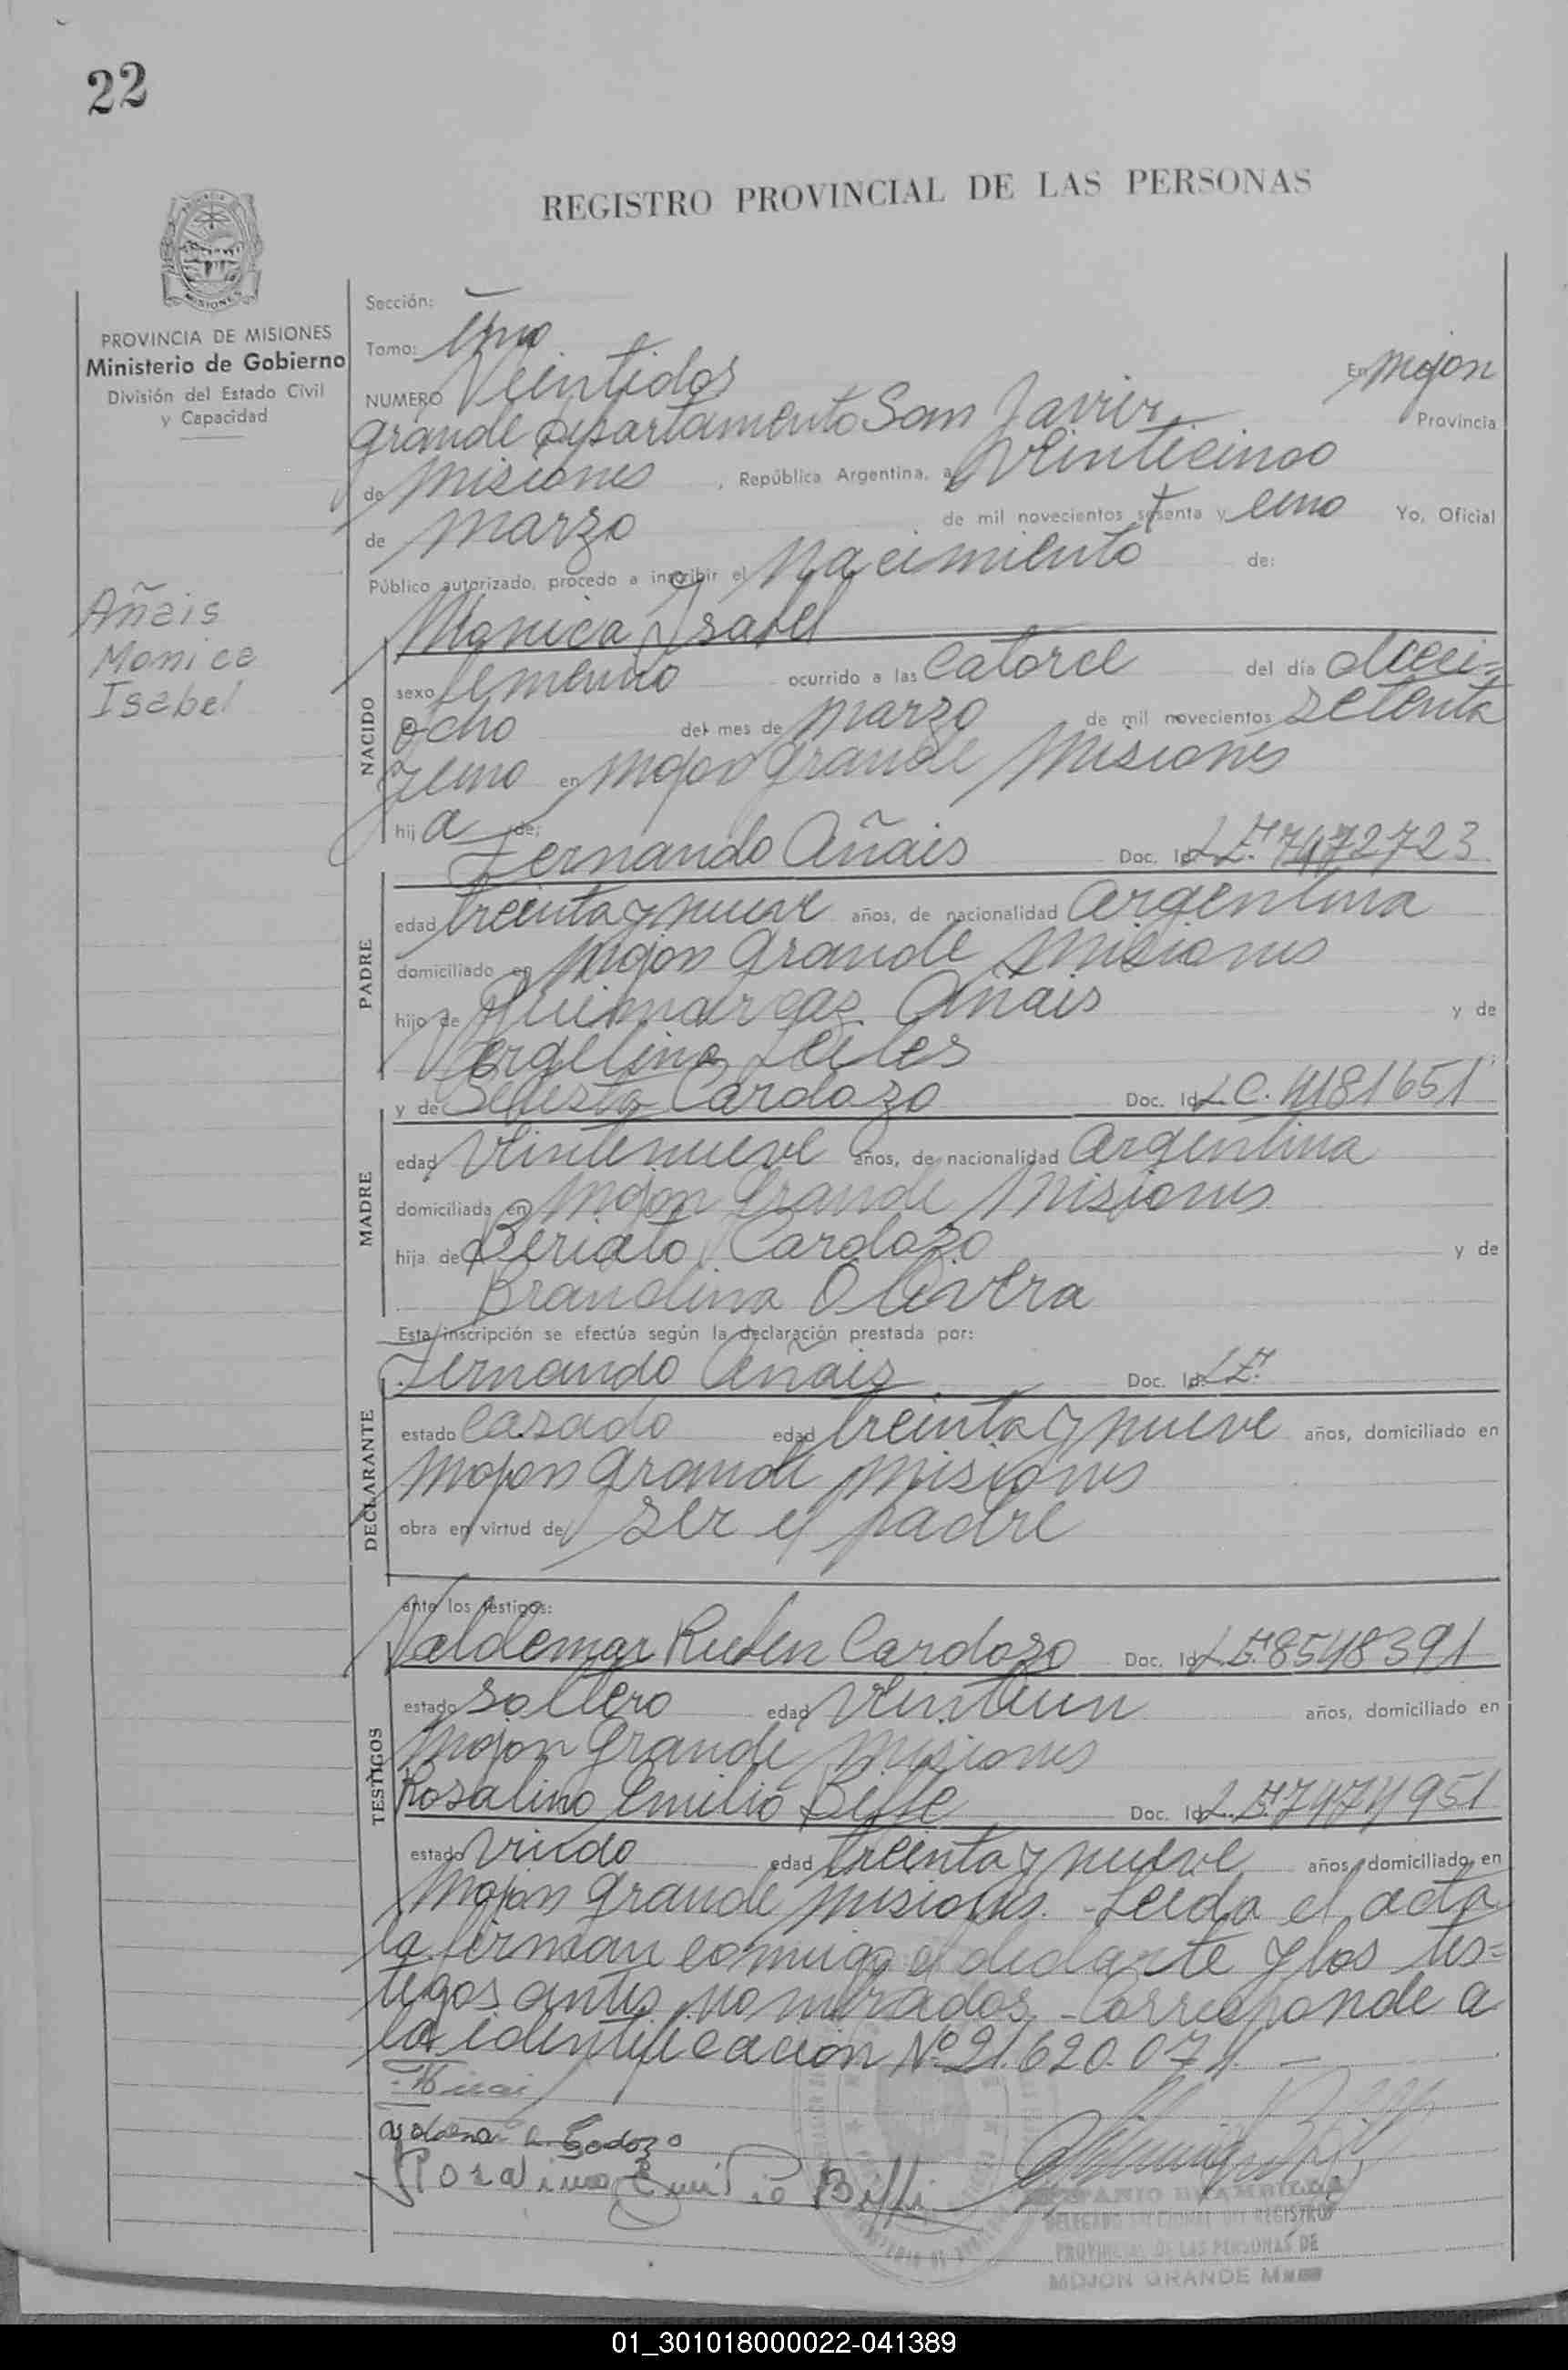 22
REGISTRO PROVINCIAL DE LAS PERSONAS
MISIONES
PROVINCIA DE MISIONES
Ministerio de Gobierno
División del Estado Civil
y Capacidad
Añais
Monica
Isabel
Sección: —
Tomo: Uno
NUMERO Veintidos En Mojon
grande Departamento San Javier Provincia
de Misiones, República Argentina, a Veinticinco
de Marzo de mil novecientos setenta y uno Yo, Oficial
Público autorizado, procedo a inscribir el Nacimiento de:
Monica Isabel
NACIDO
sexo femenino ocurrido a las Catorce del día dieci=
ocho del mes de Marzo de mil novecientos setenta
y uno en Mojon grande Misiones
hija de:
Fernando Añais Doc. Id. L.E. 7472723
PADRE
edad treinta y nueve años, de nacionalidad Argentina
domiciliado en Mojon Grande Misiones
hijo de Añais y de
Leiles
y de Cardozo Doc. Id. L.C. 4181651
MADRE
edad Veintenueve años, de nacionalidad Argentina
domiciliada en Mojon Grande Misiones
hija de Beriato Cardozo y de
Brandina Olivera
Esta inscripción se efectúa según la declaración prestada por:
Fernando Añais Doc. Id. L.E.
DECLARANTE
estado Casado edad treinta y nueve años, domiciliado en
Mojon Grande Misiones
obra en virtud de ser el padre
ante los testigos:
Valdemar Ruben Cardozo Doc. Id. L.E. 8548391
TESTIGOS
estado soltero edad Veintiun años, domiciliado en
Mojon Grande Misiones
Rosalino Emilio Doc. Id. L.E. 7474951
estado Viudo edad treinta y nueve años, domiciliado en
Mojon Grande Misiones. - Leida el acta
la firman conmigo el declarte y los tes=
tigos antes nombrados. - Corresponde a
la identificacion Nº 21.620.071. —
Rosalino Emilio
DELEGADO SECCIONAL DEL REGISTRO
PROVINCIAL DE LAS PERSONAS DE
MOJON GRANDE
01_301018000022-041389